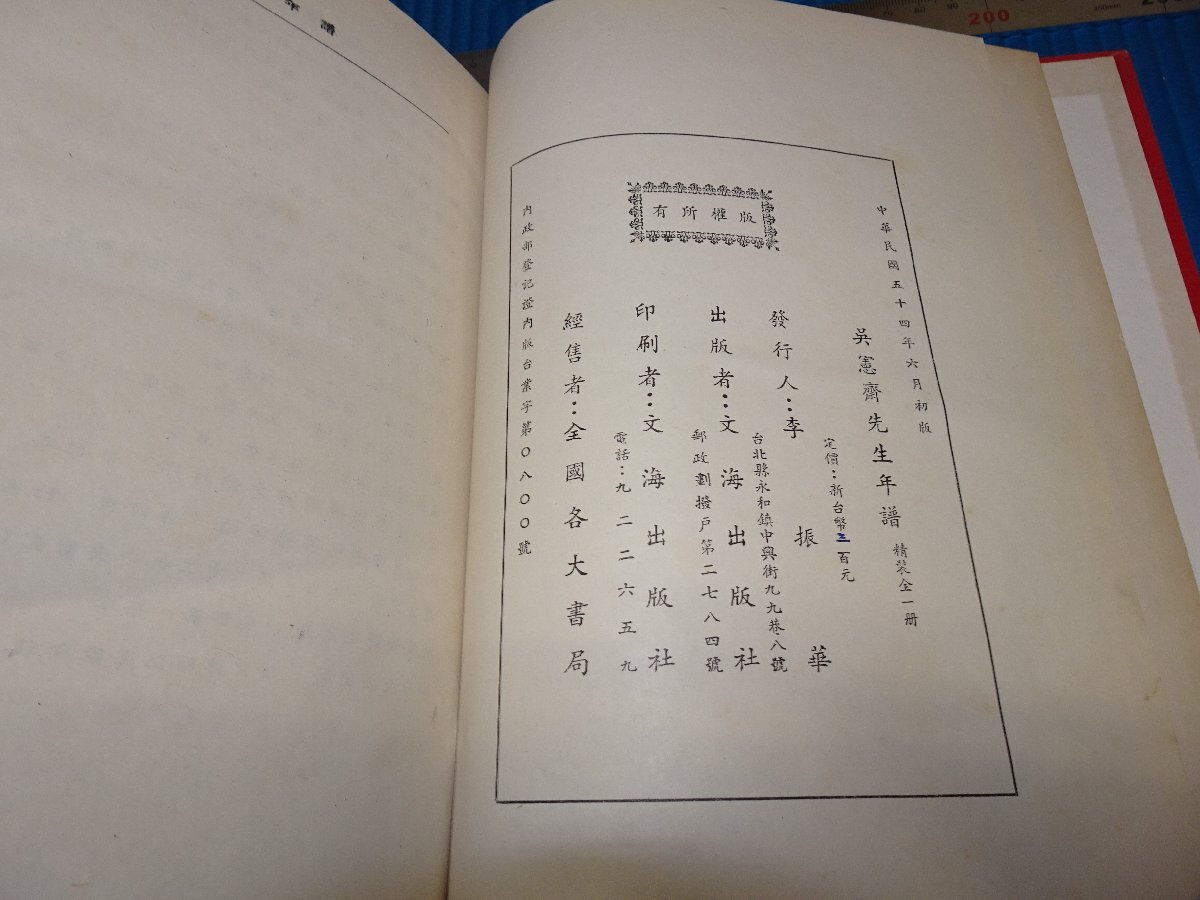 年譜
版權所有
中華民國五十四年六月初版
吳憲齋先生年譜 精裝全一册
定價：新台幣三百元
發行人：李振華
台北縣永和鎮中興街九九巷八號
出版者：文海出版社
郵政劃撥戶第二七八四號
印刷者：文海出版社
電話：九二二六五九
經售者：全國各大書局
內政部登記證內版台業字第〇八〇〇號
200